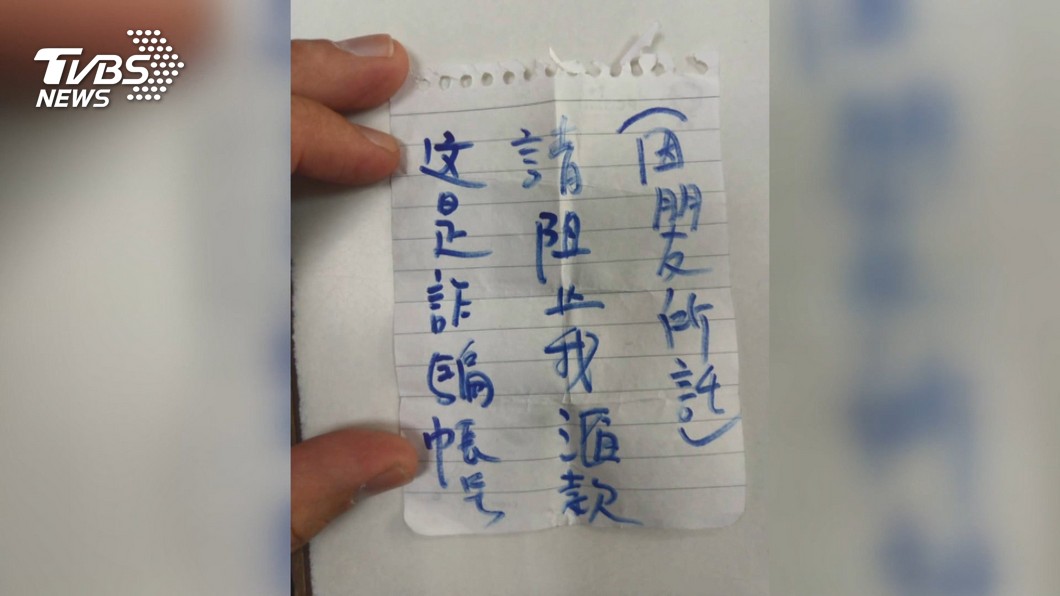 TVBS
NEWS
这是詐騙帳号
請阻止我滙款
(因朋友所託)